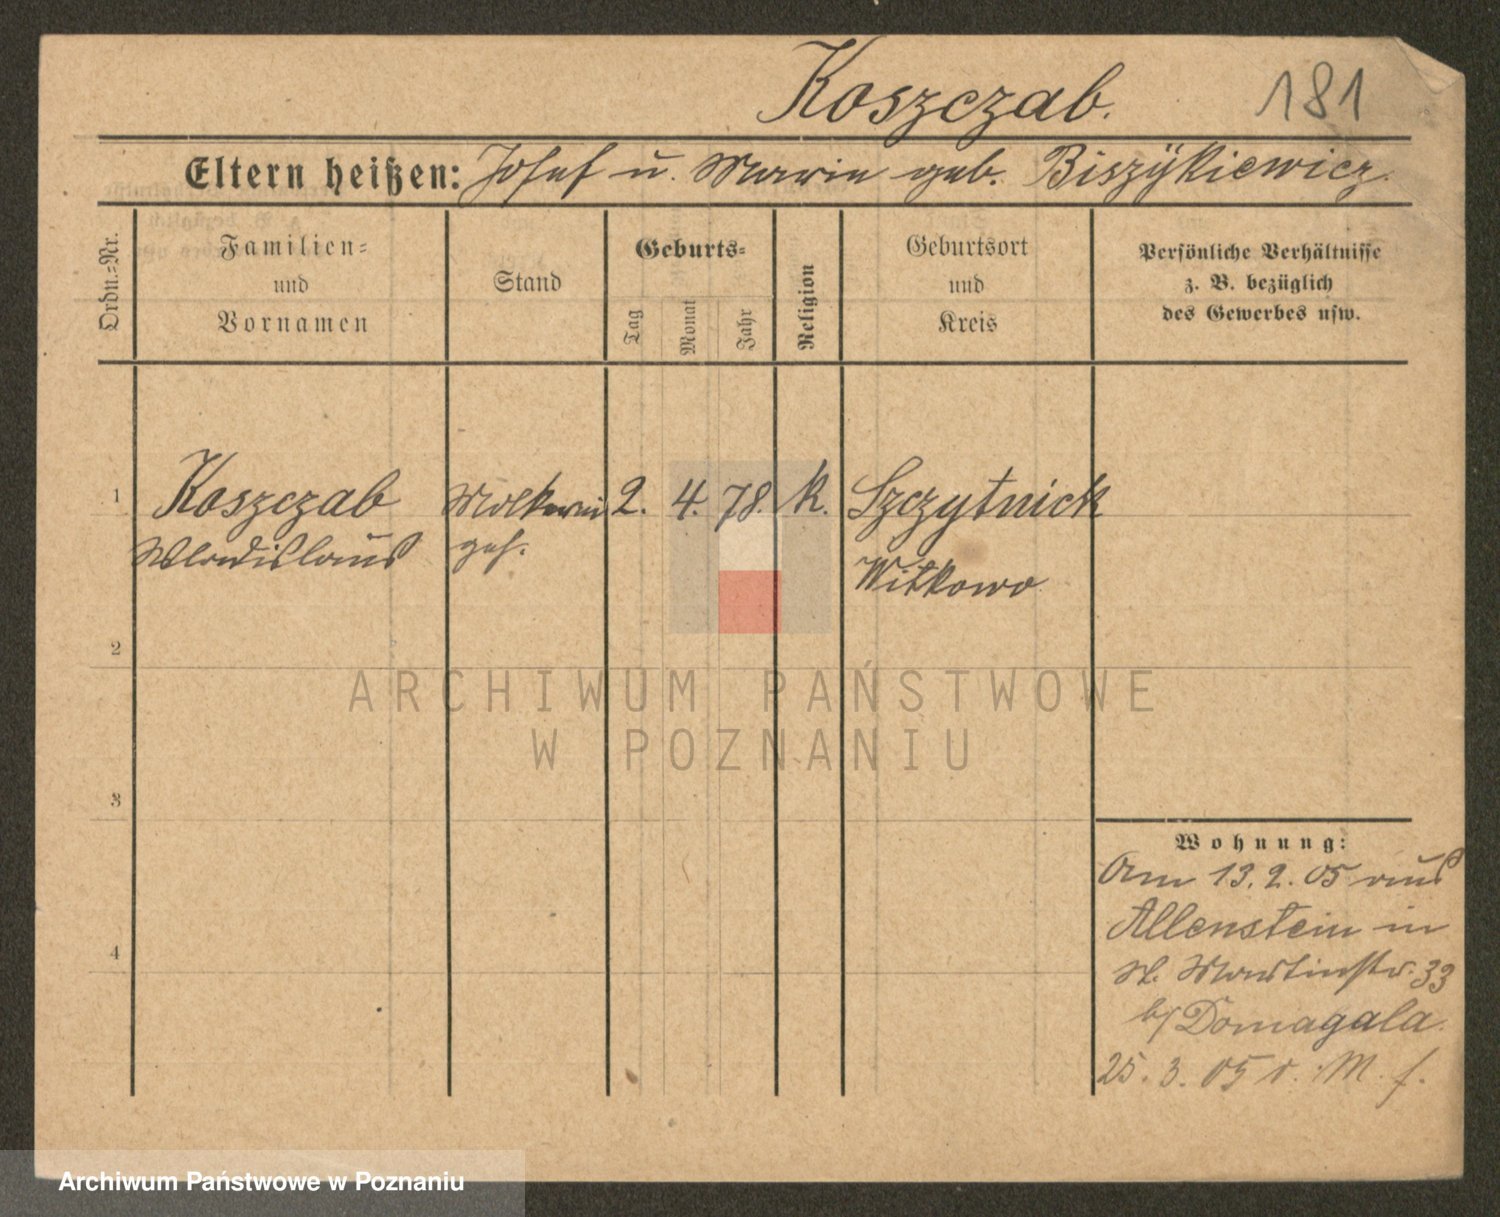 Koszczab. 181
Eltern heißen: Josef u. Marie geb. Biszÿkiewicz.
Ordn.=Nr.
Familien=
und
Vornamen
Stand
Geburts=
Tag
Monat
Jahr
Religion
Geburtsort
und
Kreis
Persönliche Verhältnisse
z. B. bezüglich
des Gewerbes usw.
1 Koszczab Molkerei 2. 4. 78. k. Szczytnick
Wladislaus geh. Witkowo
2
3
4
Wohnung:
Am 13. 2. 05 aus
Allenstein in
St. Martinstr. 33
b/ Domagala.
25. 3. 05 v. M. f.
ARCHIWUM PAŃSTWOWE
W POZNANIU
Archiwum Państwowe w Poznaniu